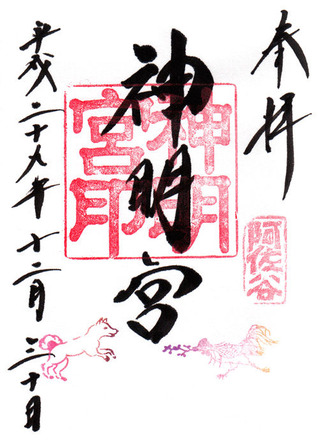 奉拝
阿佐谷
神明宮
神明
宮印
平成二十九年十二月三十日